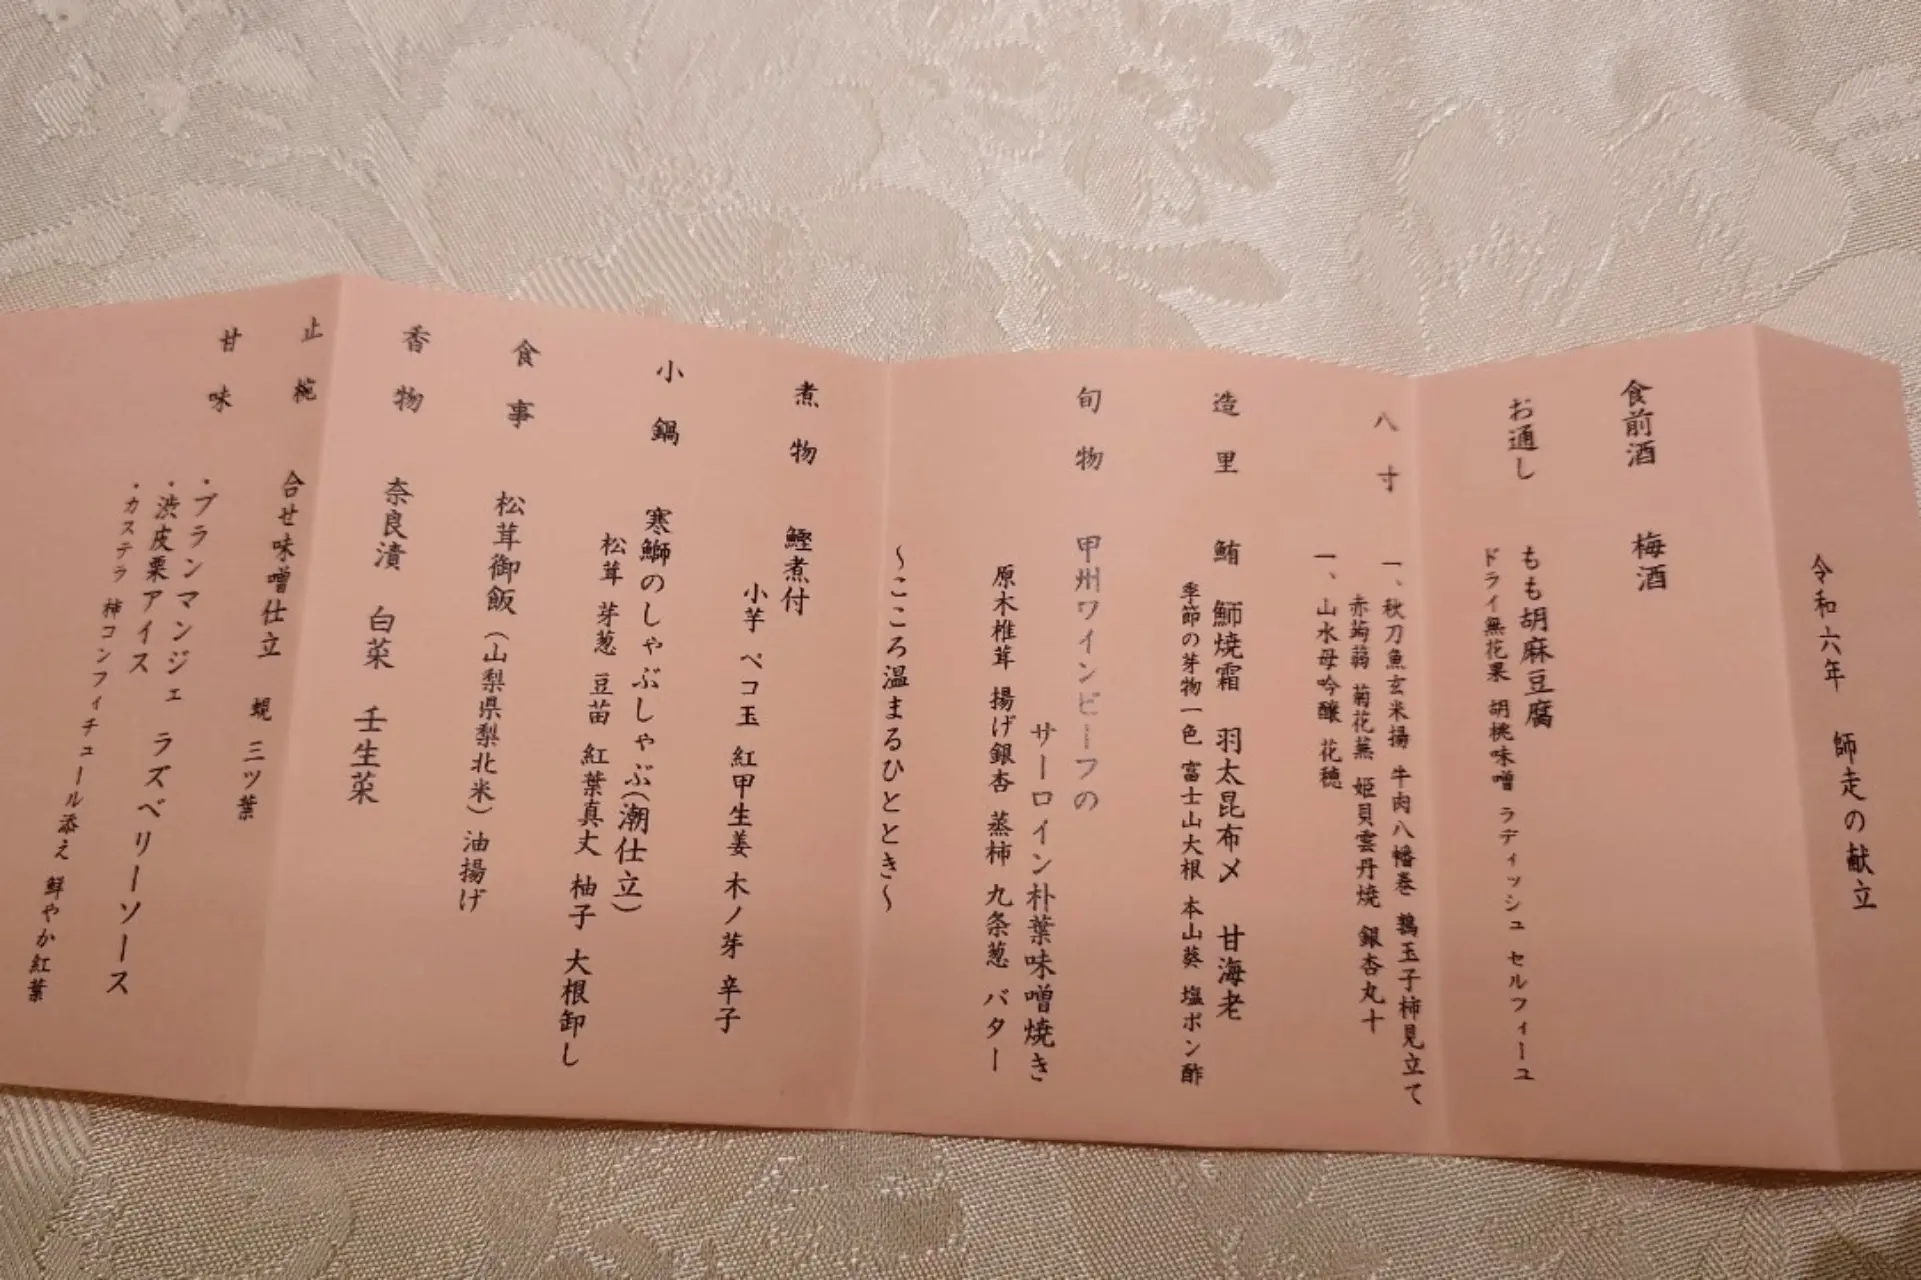 令和六年 師走の献立
食前酒 梅酒
お通し もも胡麻豆腐
ドライ無花果 胡桃味噌 ラディッシュ セルフィーユ
八寸 一、秋刀魚玄米揚 牛肉八幡巻 鶉玉子柿見立て
赤蒟蒻 菊花蕪 姫貝雲丹焼 銀杏丸十
一、山水母吟醸 花穂
造里 鮪 鰤焼霜 羽太昆布〆 甘海老
季節の芽物一色 富士山大根 本山葵 塩ポン酢
旬物 甲州ワインビーフの
サーロイン朴葉味噌焼き
原木椎茸 揚げ銀杏 蒸柿 九条葱 バター
～こころ温まるひととき～
煮物 鰹煮付
小芋 ペコ玉 紅甲生姜 木ノ芽 辛子
小鍋 寒鰤のしゃぶしゃぶ(潮仕立)
松茸 芽葱 豆苗 紅葉真丈 柚子 大根卸し
食事 松茸御飯(山梨県梨北米) 油揚げ
香物 奈良漬 白菜 壬生菜
止椀 合せ味噌仕立 蜆 三ツ葉
甘味 ・ブランマンジェ ラズベリーソース
・渋皮栗アイス
・カステラ 柿コンフィチュール添え 鮮やか紅葉